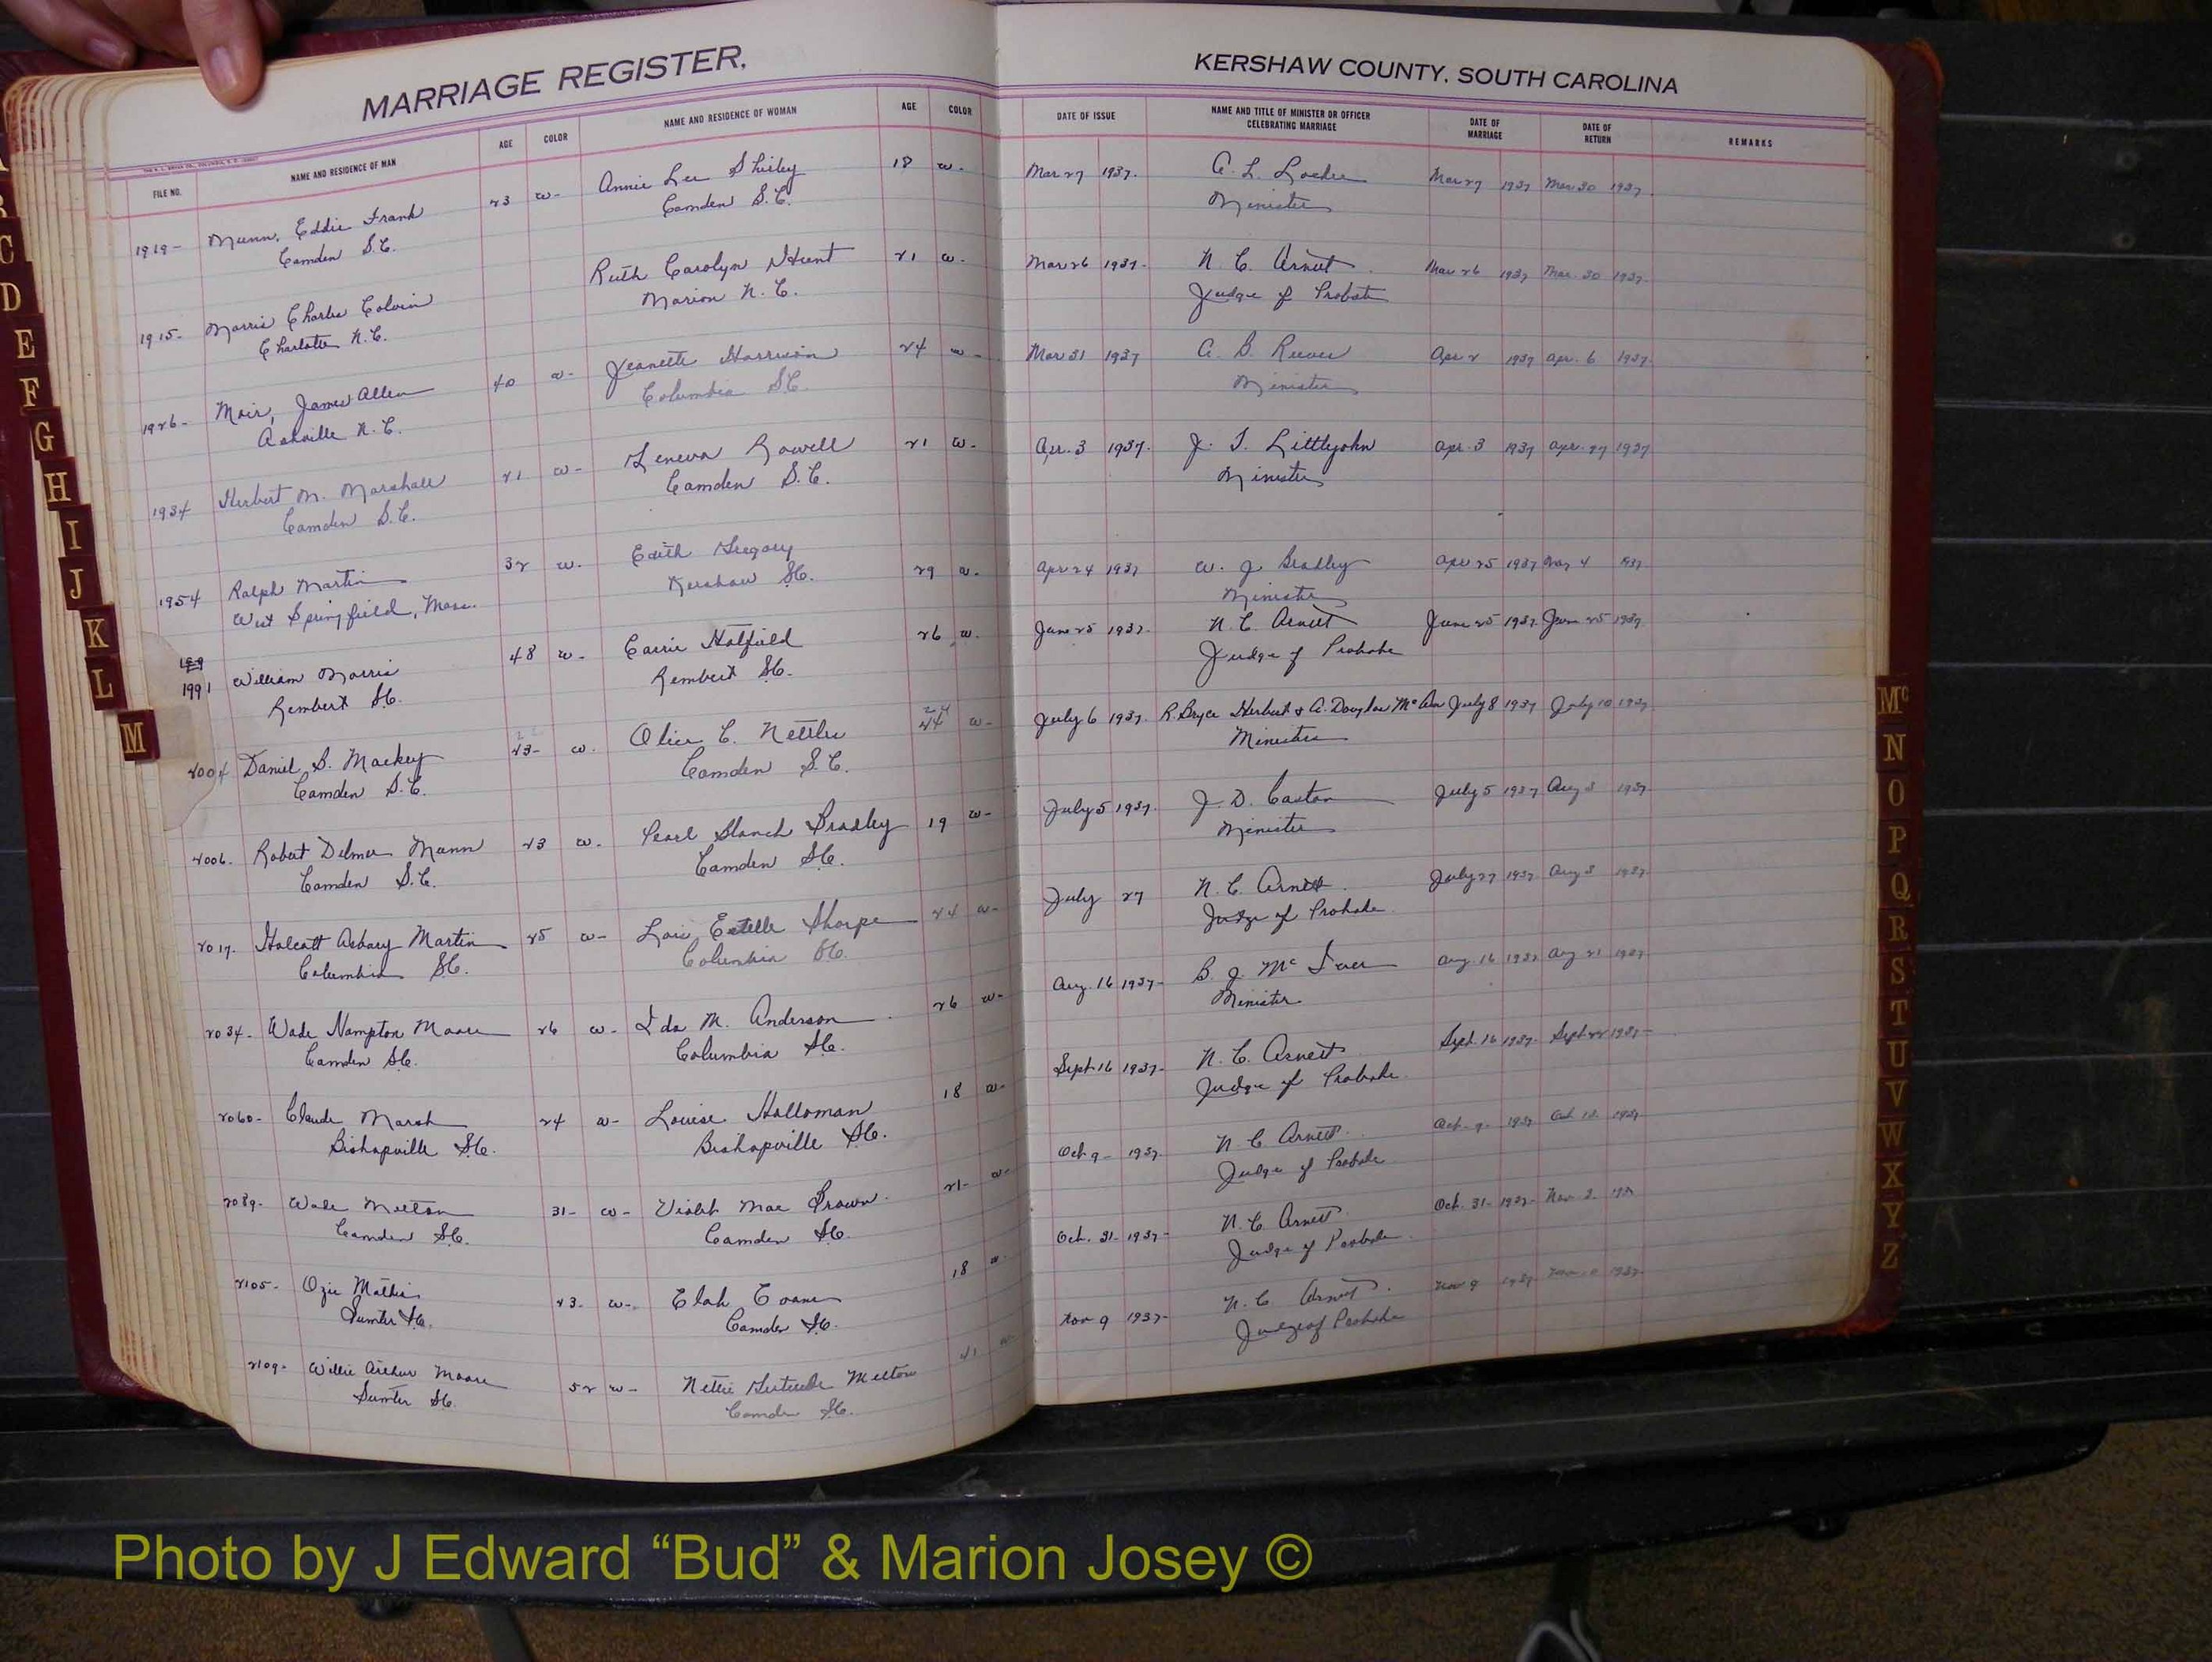 MARRIAGE REGISTER,
KERSHAW COUNTY, SOUTH CAROLINA
FILE NO. NAME AND RESIDENCE OF MAN AGE COLOR NAME AND RESIDENCE OF WOMAN AGE COLOR DATE OF ISSUE NAME AND TITLE OF MINISTER OR OFFICER CELEBRATING MARRIAGE DATE OF MARRIAGE DATE OF RETURN REMARKS
1919- Munn, Eddie Frank 23 w- Annie Lee Shirley 18 w- Mar 27 1937. A. L. Mar 27 1937 Mar 30 1937.
Camden S.C. Camden S.C. Minister
1915- Morris Charles Colvin Ruth Carolyn Hunt 21 w- Mar 26 1937- N. C. Arnett Mar 26 1937 Mar. 30 1937.
Charlotte N.C. Marion N.C. Judge of Probate
1926- Moir, James Allen 40 w- Jeanette Harrison 24 w- Mar 31 1937 A. B. Reeves Apr 2 1937 Apr. 6 1937.
Ashville N.C. Columbia S.C. Minister
1934 Herbert M. Marshall 21 w- Geneva Rowell 21 w- Apr. 3 1937. J. T. Littlejohn Apr. 3 1937 Apr. 27 1937
Camden S.C. Camden S.C. Minister
1954 Ralph Martin 32 w. Edith Gregory 29 w. Apr 24 1937 W. J. Bradley Apr 25 1937 May 4 1937
West Springfield, Mass. Kershaw S.C. Minister
1991 William Morris 48 w- Carrie Hatfield 26 w. June 25 1937. N. C. Arnett June 25 1937. June 25 1937.
Rembert S.C. Rembert S.C. Judge of Probate
2004 Daniel S. Mackey 23- w. Olive C. Nettles 24 w- July 6 1937. R. Bryce Herbert & A. Douglas July 8 1937 July 10 1937
Camden S.C. Camden S.C. Minister
2006. Robert Delmer Munn 23 w. Pearl Blanch Bradley 19 w- July 5 1937. J. D. Caston July 5 1937 Aug 3 1937.
Camden S.C. Camden S.C. Minister
2017. Asbury Martin 25 w- Lois Estelle Sharpe 24 w- July 27 N. C. Arnett July 27 1937. Aug 3 1937.
Columbia S.C. Columbia S.C. Judge of Probate
2034. Wade Hampton Moore 26 w- Ida M. Anderson 26 w- Aug. 16 1937- B. J. Aug. 16 1937 Aug 21 1937
Camden S.C. Columbia S.C. Minister
2060- Claude Marsh 24 w- Louise Holloman 18 w- Sept 16 1937- N. C. Arnett Sept. 16 1937. Sept 22 1937-
Bishopville S.C. Bishopville S.C. Judge of Probate
2089- Wade Melton 31- w- Violet Mae Brown 21- w- Oct 9- 1937. N C Arnett Oct. 9- 1937 Oct 12. 1937
Camden S.C. Camden S.C. Judge of Probate
2105- Ozie Mathis 23- w- Elah Evans 18 w Oct. 31- 1937- N. C Arnett Oct. 31- 1937- Nov 2. 1937
Sumter S.C. Camden S.C. Judge of Probate
2109- Willie Arthur Moore 52 w- Nettie Gertrude Melton 41 w- Nov 9 1937- N. C Arnett Nov 9 1937
Sumter S.C. Camden S.C. Judge of Probate
C
D
E
F
G
H
I
J
K
L
M
Mc
N
O
P
Q
R
S
T
U
V
W
X
Y
Z
Photo by J Edward “Bud” & Marion Josey ©